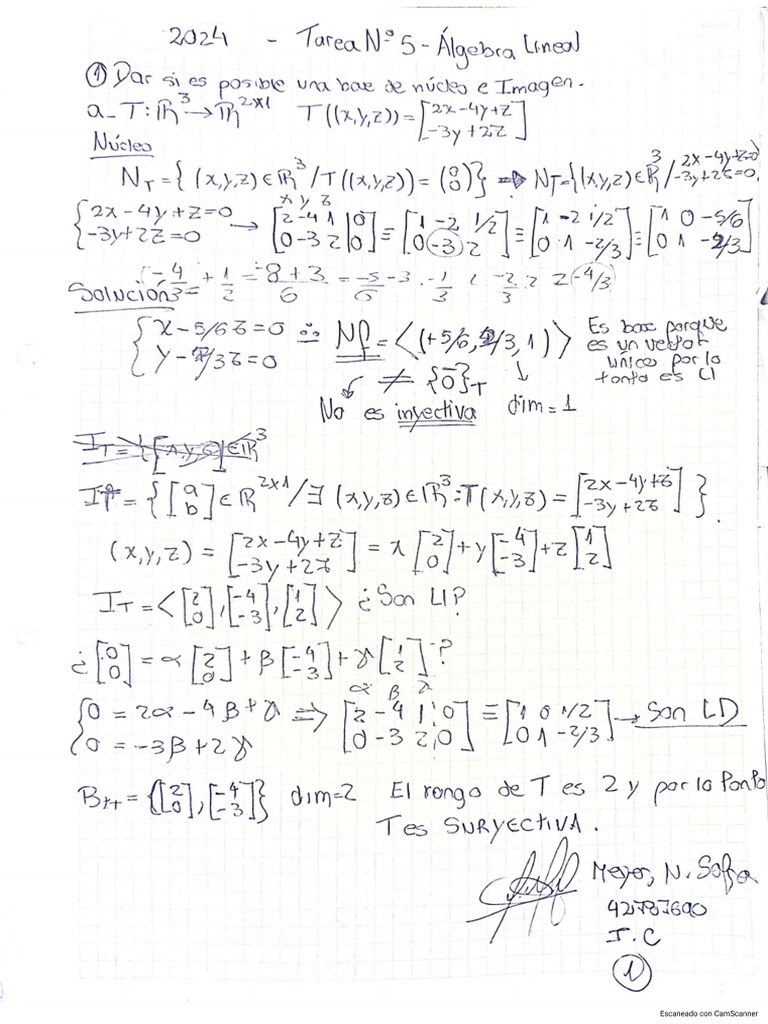 2024 - Tarea N° 5 - Álgebra Lineal
① Dar si es posible una base de núcleo e Imagen.
a_ T: ℝ³ → ℝ²ˣ¹ T((x,y,z)) = [2x-4y+z; -3y+2z]
Núcleo
N_T = { (x,y,z) ∈ ℝ³ / T((x,y,z)) = (0; 0) } ⇒ N_T = {(x,y,z) ∈ ℝ³ / 2x-4y+z=0, -3y+2z=0.
{2x-4y+z=0; -3y+2z=0 → x y z [2 -4 1 | 0; 0 -3 2 | 0] ≡ [1 -2 1/2; 0 -3 2] ≡ [1 -2 1/2; 0 1 -2/3] ≡ [1 0 -5/6; 0 1 -2/3]
-4/3 + 1/2 = -8+3/6 = -5/6 -3 · -1/3 -2/3 2 -4/3
Solución
{x - 5/6 z = 0; y - 2/3 z = 0 ∴ Nf = ⟨(+5/6, 2/3, 1)⟩ Es base porque
es un vector
único por lo
tanto es LI
≠ {0̄}_T
No es inyectiva dim = 1
I_T = {[x,y,z] ∈ ℝ³
I_T = {[a; b] ∈ ℝ²ˣ¹ / ∃ (x,y,z) ∈ ℝ³ : T(x,y,z) = [2x-4y+z; -3y+2z] }.
(x,y,z) = [2x-4y+z; -3y+2z] = x [2; 0] + y [-4; -3] + z [1; 2]
I_T = < [2; 0], [-4; -3], [1; 2] > ¿Son LI?
¿[0; 0] = α [2; 0] + β [-4; -3] + γ [1; 2] ?
{0 = 2α - 4β + γ; 0 = -3β + 2γ ⇒ α β γ [2 -4 1 | 0; 0 -3 2 | 0] ≡ [1 0 1/2; 0 1 -2/3] → Son LD
B = {[2; 0], [-4; -3]} dim=2 El rango de T es 2 y por lo tanto
T es SURYECTIVA.
Meyer, N. Sofia
42787690
I.C
①
Escaneado con CamScanner